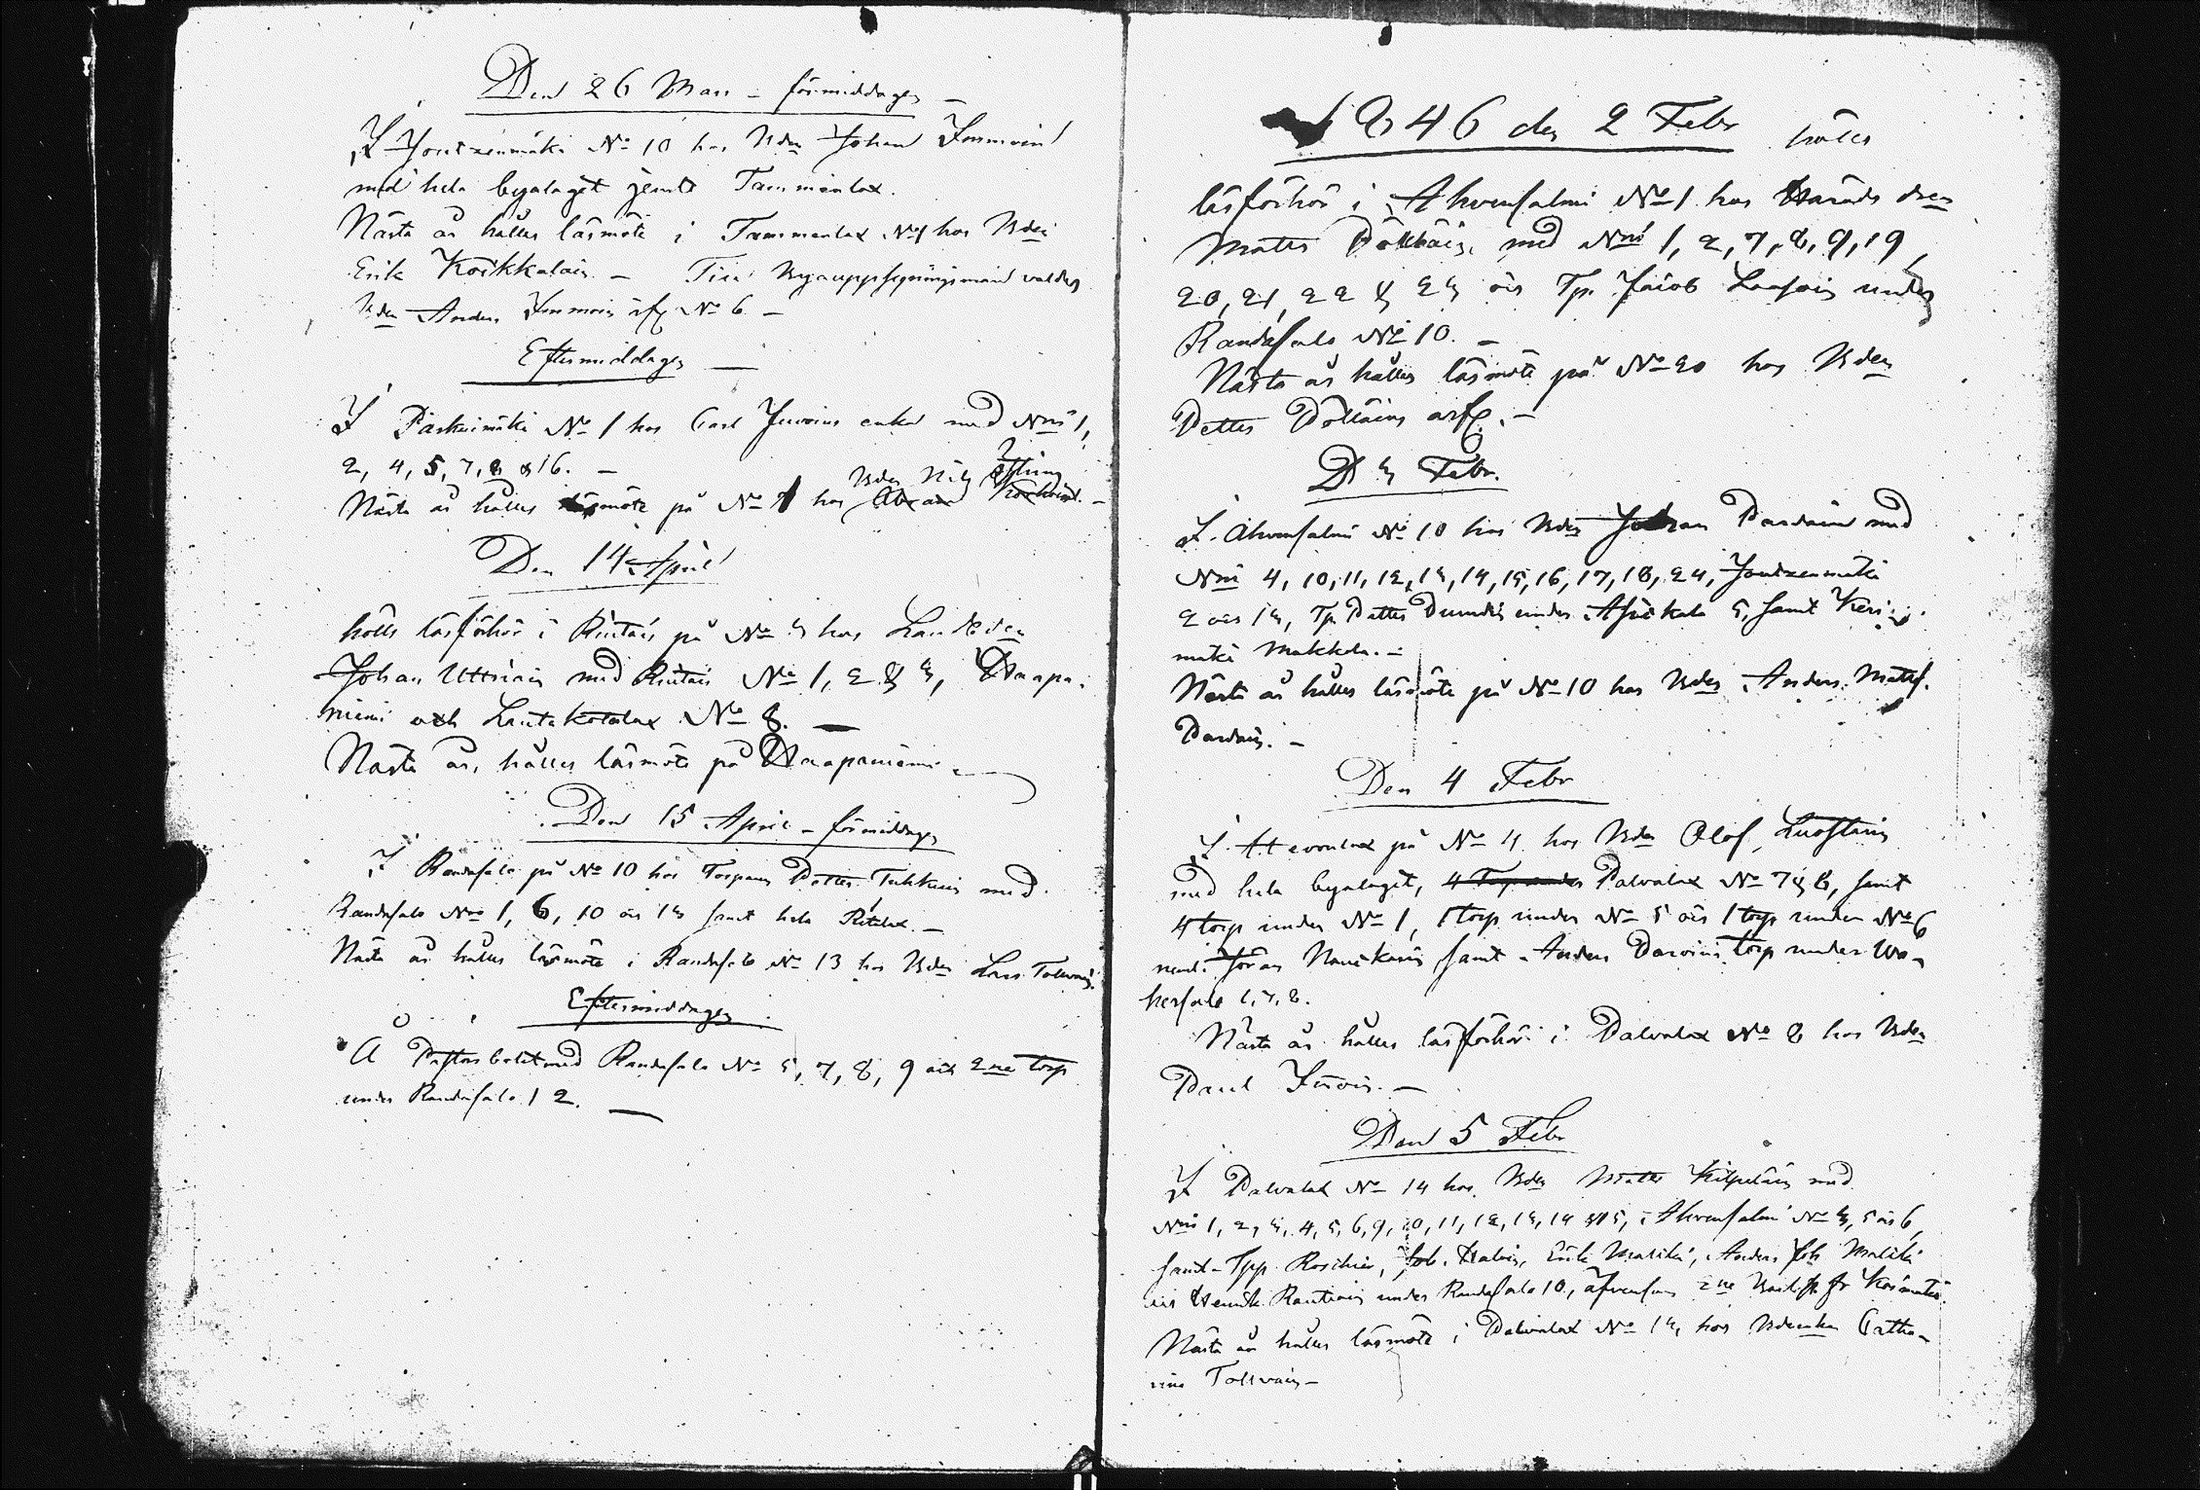 Den 26 Mars - förmiddagen -
I Joutzenmäki No 10 hos Bdn Johan Immoin
med hela byalaget jemte Tammenlax.
Nästa år hålles läsmöte i Tammenlax No 1 hos Bden
Erik Koikkalain. - Till Byauppsyningsman valdes
Bden Anders Immoin ifr. No 6 -
Eftermiddagen -
I Paskumäki No 1 hos Carl Juvoins enka med Nris 1,
2, 4, 5, 7, 8 & 16. -
Nästa år hålles läsmöte på No 1 hos Bden Nils
Den 14 April
hölls läsförhör i Rintais på No 3 hos
Johan Uttriain med Rintais No 1, 2 & 3, Haapa-
niemi och Lautakotalax No 8. -
Nästa år, hålles läsmöte på Haapaniemi -
Den 15 April - förmiddagen
I Randasalo på No 10 hos Torparen Petter Tuhkain med
Randasalo No 1, 6, 10 och 13 samt hela Ritulax. -
Nästa år hålles läsmöte i Randasalo No 13 hos Bden Lars Tolvain.
Eftermiddagen
Å Pastorsbolet med Randasalo No 5, 7, 8, 9 och 2ne torp
under Randasalo 12. -
1846 den 2 Febr hölls
läsförhör i Ahvensalmi No 1 hos Härads
Matts Pölläin, med Nris 1, 2, 7, 8, 9, 19,
20, 21, 22 & 23 och Tp. Jacob Laasoin under
Randasalo No 10. -
Nästa år hålles läsmöte på No 20 hos Bden
Petter Pölläins
D 3 Febr.
I Ahvensalmi No 10 hos Bden Johan Pardain med
Nris 4, 10, 11, 12, 13, 14, 15, 16, 17, 18, 24, Joutzenmäki
2 och 13, Tp. Petter under 5, samt Keri-
mäki Makkola. -
Nästa år hålles läsmöte på No 10 hos Bden Anders Mattss.
Pardain. -
Den 4 Febr
I på No 4 hos Bdn Olof
med hela byalaget, 4 Torp under Palvalax No 7 & 8, samt
4 torp under No 1, 1 torp under No 5 och 1 torp under No 6
neml. Jöran samt Anders Parvins torp under Wo-
kersalo 1, 7, 8.
Nästa år hålles läsförhör i Palvalax No 8 hos Bden
Paul Juvoin. -
Den 5 Febr
I Palvalax No 14 hos Bden Matts Kilpeläin med
Nris 1, 2, 3, 4, 5, 6, 9, 10, 11, 12, 13, 14 & 15, i Ahvensalmi No 3, 5 och 6,
samt Tpp. Rosihin, Joh. Halin, Erik Matiki, Anders Joh. Matiki
och Henrik Rautiain under Randasalo 10, äfvensom 2ne
Nästa år hålles läsmöte i Palvalax No 13, hos Bdeenkan Catha-
rina Tollvain -